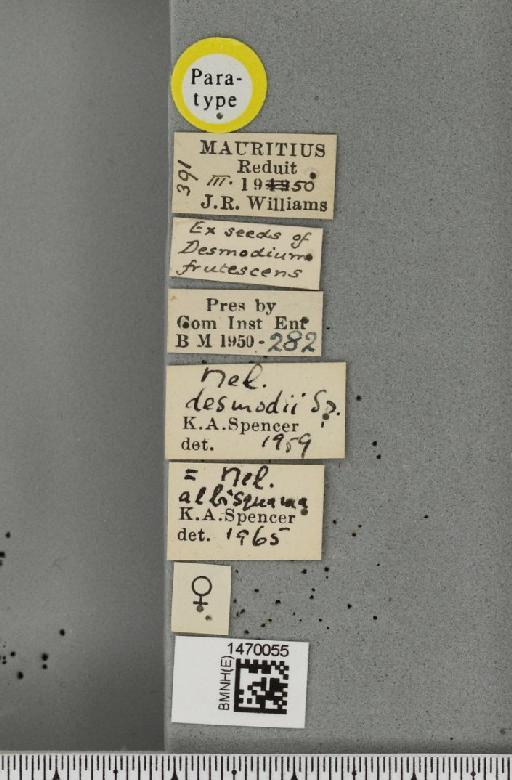 Para-
type
MAURITIUS
Reduit
III. 1950
J.R. Williams
391
Ex seeds of
Desmodium
frutescens
Pres by
Com Inst Ent
B M 1950-282
Mel.
desmodii Sp.
K.A.Spencer
det. 1959
= Mel.
albisquama
K.A.Spencer
det. 1965
♀
1470055
BMNH(E)